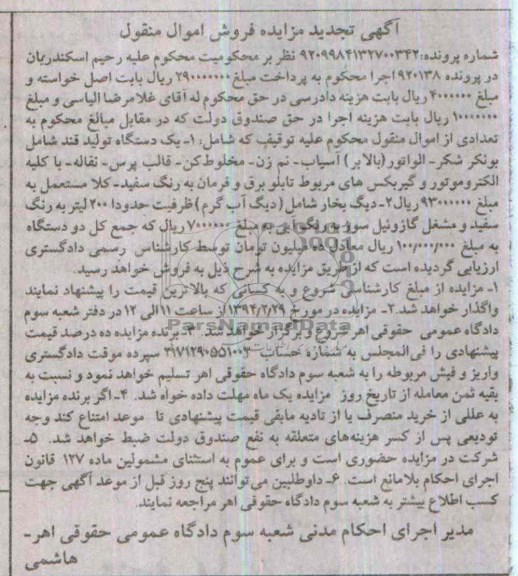 آگهی تجدید مزایده فروش اموال منقول
شماره پرونده:۹۲۰۹۹۸۴۱۳۲۷۰۰۳۴۲ نظر بر محکومیت محکوم علیه رحیم اسکندریان
در پرونده ۹۲۰۱۳۸ اجرا محکوم به پرداخت مبلغ ۲۹۰۰۰۰۰۰۰ ریال بابت اصل خواسته و
مبلغ ۴۰۰۰۰۰۰ ریال بابت هزینه دادرسی در حق محکوم له آقای غلامرضا الیاسی و مبلغ
۱۰۰۰۰۰۰۰ ریال بابت هزینه اجرا در حق صندوق دولت که در مقابل مبالغ محکوم به
تعدادی از اموال منقول محکوم علیه توقیف که شامل: ۱- یک دستگاه تولید قند شامل
بونکر شکر- الواتور (بالابر) آسیاب- نم زن- مخلوط کن- قالب پرس- نقاله- با کلیه
الکتروموتور و گیربکس های مربوط تابلو برق و فرمان به رنگ سفید- کلا مستعمل به
مبلغ ۹۳۰۰۰۰۰۰ ریال ۲- دیگ بخار شامل (دیگ آب گرم) ظرفیت حدودا ۲۰۰ لیتر به رنگ
سفید و مشعل گازوئیل سوز به رنگ آبی به مبلغ ۷۰۰۰۰۰۰ ریال که جمع کل دو دستگاه
به مبلغ ۱۰۰/۰۰۰/۰۰۰ ریال معادل میلیون تومان توسط کارشناس رسمی دادگستری
ارزیابی گردیده است که از طریق مزایده به شرح ذیل به فروش خواهد رسید.
۱- مزایده از مبلغ کارشناسی شروع و به کسانی که بالاترین قیمت را پیشنهاد نمایند
واگذار خواهد شد. ۲- مزایده در مورخ ۱۳۹۴/۲/۲۹ از ساعت ۱۱ الی ۱۲ در دفتر شعبه سوم
دادگاه عمومی حقوقی اهر شروع و برگزار خواهد شد. ۳- برنده مزایده ده درصد قیمت
پیشنهادی را فی المجلس به شماره حساب ۲۱۷۱۲۹۰۵۵۱۰۰۳ سپرده موقت دادگستری
واریز و فیش مربوطه را به شعبه سوم دادگاه حقوقی اهر تسلیم خواهد نمود و نسبت به
بقیه ثمن معامله از تاریخ روز مزایده یک ماه مهلت داده خواه شد. ۴- اگر برنده مزایده
به عللی از خرید منصرف یا از تادیه مابقی قیمت پیشنهادی تا موعد امتناع کند وجه
تودیعی پس از کسر هزینه‌های متعلقه به نفع صندوق دولت ضبط خواهد شد. ۵-
شرکت در مزایده حضوری است و برای عموم به استثنای مشمولین ماده ۱۲۷ قانون
اجرای احکام بلامانع است. ۶- داوطلبین می‌توانند پنج روز قبل از موعد آگهی جهت
کسب اطلاع بیشتر به شعبه سوم دادگاه حقوقی اهر مراجعه نمایند.
مدیر اجرای احکام مدنی شعبه سوم دادگاه عمومی حقوقی اهر-
هاشمی
ParsNamadData